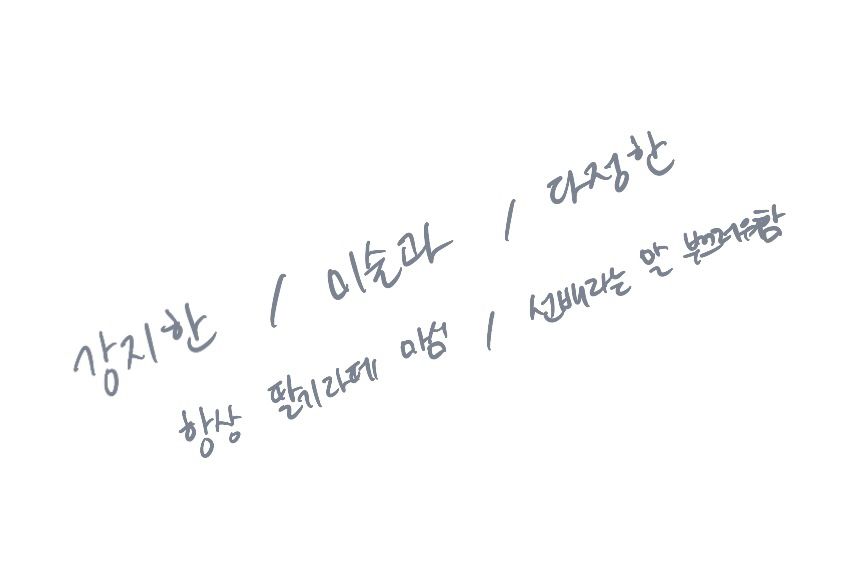 강지한 / 미술과 / 다정한
항상 딸기라떼 마심 / 선배라는 말 부끄러워함